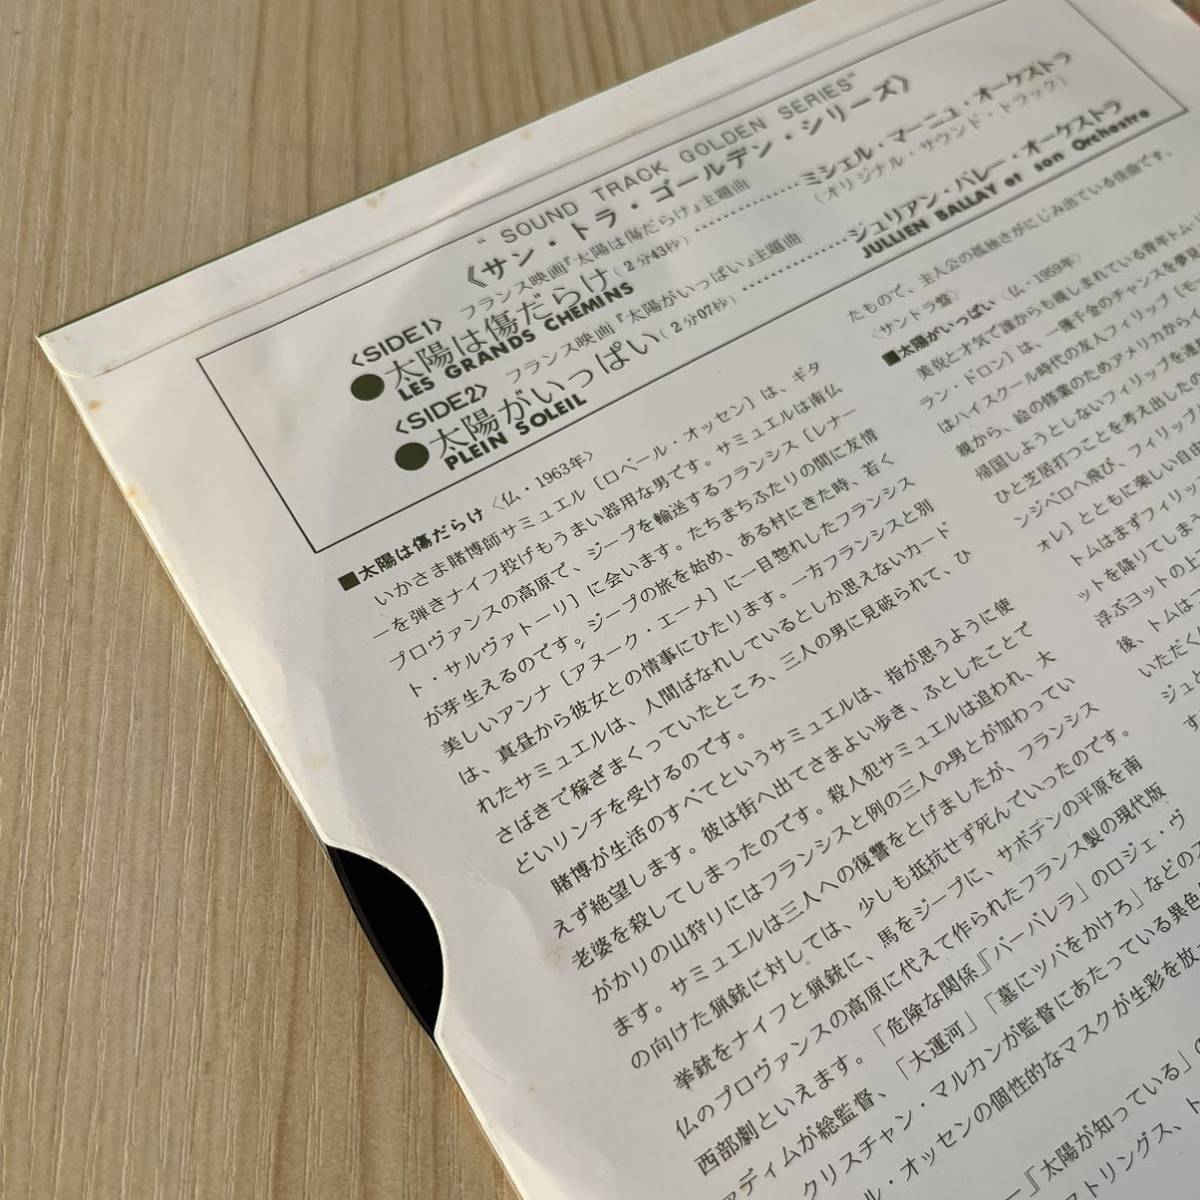 "SOUND TRACK GOLDEN SERIES"
《サン・トラ・ゴールデン・シリーズ》
〈SIDE1〉 フランス映画『太陽は傷だらけ』主題曲
●太陽は傷だらけ(2分43秒)………………ミシェル・マーニュ・オーケストラ
LES GRANDS CHEMINS (オリジナル・サウンド・トラック)
〈SIDE2〉 フランス映画『太陽がいっぱい』主題曲
●太陽がいっぱい(2分07秒)………………ジュリアン・バレー・オーケストラ
PLEIN SOLEIL JULLIEN BALLAY et son Orchestre
■太陽は傷だらけ〈仏・1963年〉
いかさま賭博師サミュエル［ロベール・オッセン］は、ギタ
ーを弾きナイフ投げもうまい器用な男です。サミュエルは南仏
プロヴァンスの高原で、ジープを輸送するフランシス［レナー
ト・サルヴァトーリ］に会います。たちまちふたりの間に友情
が芽生えるのです。ジープの旅を始め、ある村にきた時、若く
美しいアンナ［アヌーク・エーメ］に一目惚れしたフランシス
は、真昼から彼女との情事にひたります。一方フランシスと別
れたサミュエルは、人間ばなれしているとしか思えないカード
さばきで稼ぎまくっていたところ、三人の男に見破られて、ひ
どいリンチを受けるのです。
賭博が生活のすべてというサミュエルは、指が思うように使
えず絶望します。彼は街へ出てさまよい歩き、ふとしたことで
老婆を殺してしまったのです。殺人犯サミュエルは追われ、大
がかりの山狩りにはフランシスと例の三人の男とが加わってい
ます。サミュエルは三人への復讐をとげましたが、フランシス
の向けた猟銃に対しては、少しも抵抗せず死んでいったのです。
挙銃をナイフと猟銃に、馬をジープに、サボテンの平原を南
仏のプロヴァンスの高原に代えて作られたフランス製の現代版
西部劇といえます。「危険な関係」『バーバレラ』のロジェ・ヴ
ァディムが総監督、「大運河」「墓にツバをかけろ」などのス
クリスチャン・マルカンが監督にあたっている異色
ル・オッセンの個性的なマスクが生彩を放
ー』『太陽が知っている』の
トリングス、ト
たもので、主人公の孤独さがにじみ出ている佳曲です。
〈サントラ盤〉
■太陽がいっぱい〈仏・1959年〉
美貌と才気で誰からも親しまれている青年トム
ラン・ドロン］は、一獲千金のチャンスを夢見
はハイスクール時代の友人フィリップ［モ
親から、絵の修業のためアメリカから
帰国しようとしないフィリップを連
ひと芝居打つことを考え出したの
ンジベロへ飛び、フィリップ
ォレ］とともに楽しい自由
トムはまずフィリッ
ットを降りてしま
浮ぶヨットの上
後、トムは
いただく
ジュと